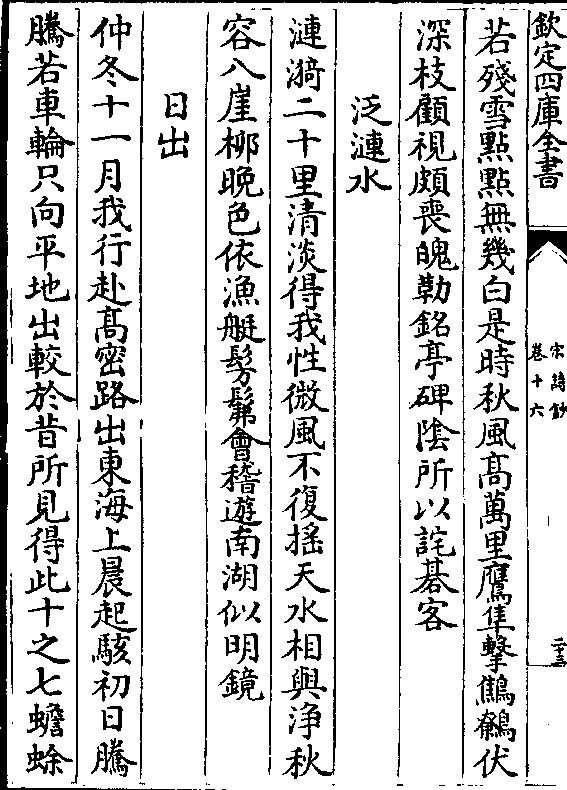 欽定四庫全書
宋詩鈔
卷十六
二十三
若殘雪點點無幾白是時秋風髙萬里鷹隼擊鷦鷯伏
深枝顧視頗喪魄勒銘亭碑陰所以詫碁客
泛漣水
漣漪二十里清淡得我性微風不復揺天水相與浄秋
容入崖柳晩色依漁艇髣髴會稽遊南湖似明鏡
日出
仲冬十一月我行赴髙密路出東海上晨起駭初日騰
騰若車輪只向平地出較於昔所見得此十之七蟾蜍